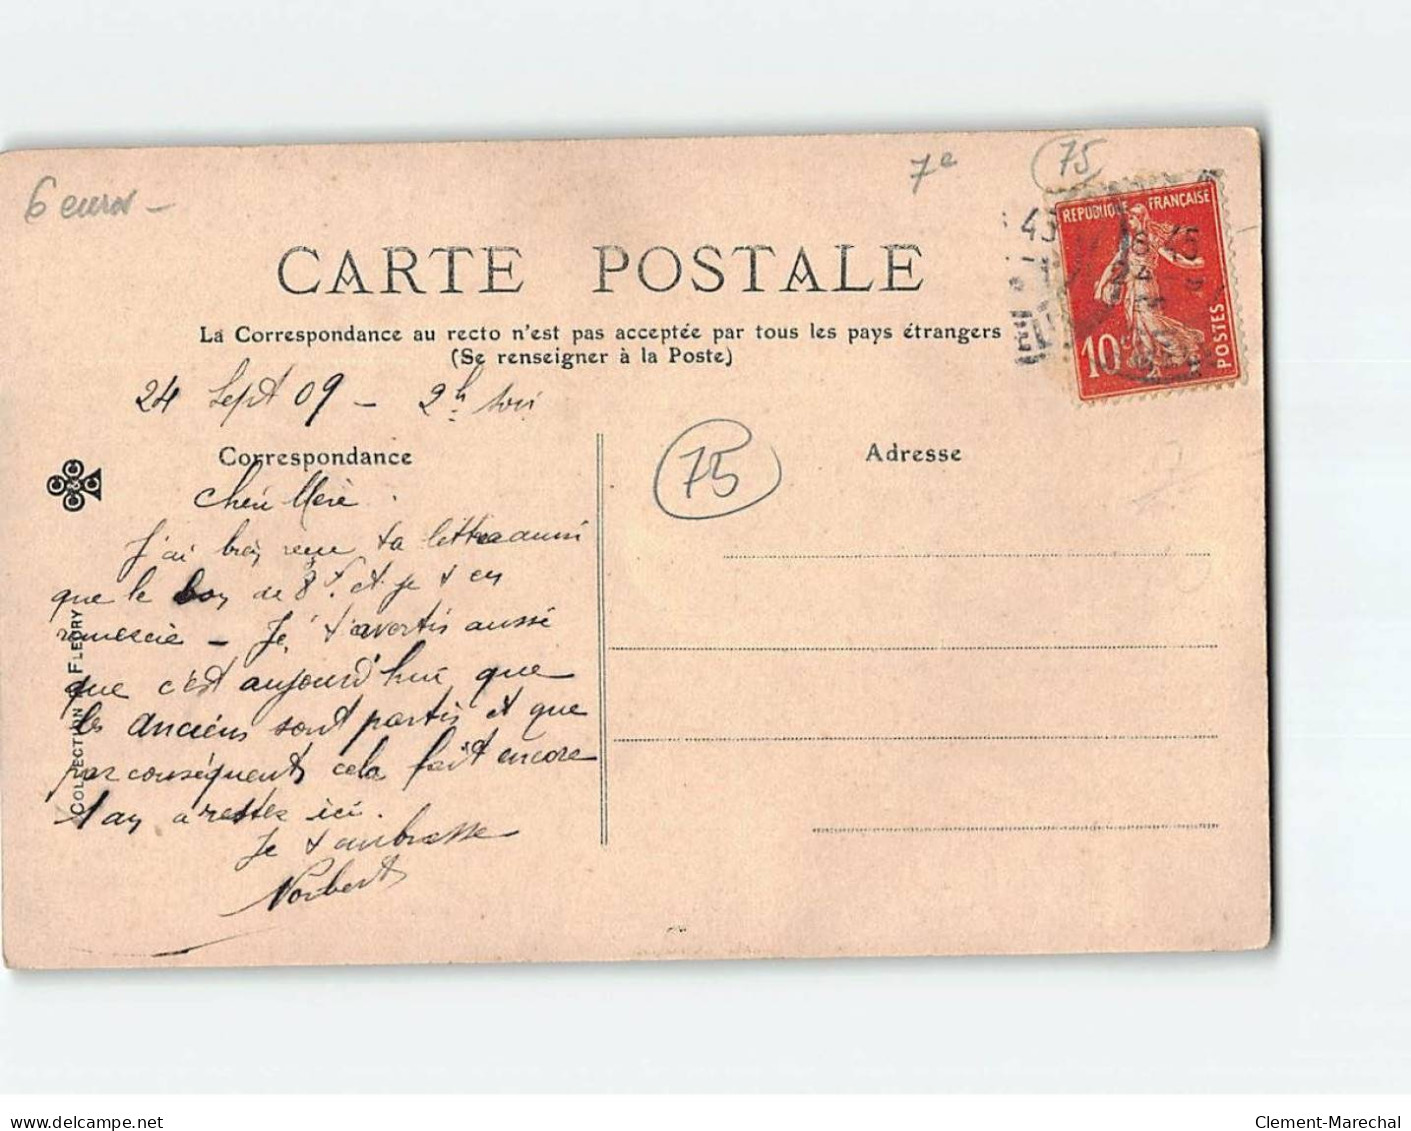 6 euros -
7e
75
CARTE POSTALE
La Correspondance au recto n'est pas acceptée par tous les pays étrangers
(Se renseigner à la Poste)
REPUBLIQUE FRANÇAISE
10c
POSTES
24 Sept 09 - 2h soir
Correspondance
Adresse
75
Chère Mère.
J'ai bien reçu ta lettre aussi
que le bon de 8f. et je t'en
remercie - Je t'avertis aussi
que c'est aujourd'hui que
les anciens sont partis et que
par conséquent cela fait encore
1 an a rester ici.
Je t'embrasse
Norbert
COLLECTION FLEURY
Clement-Marechal
delcampe.net